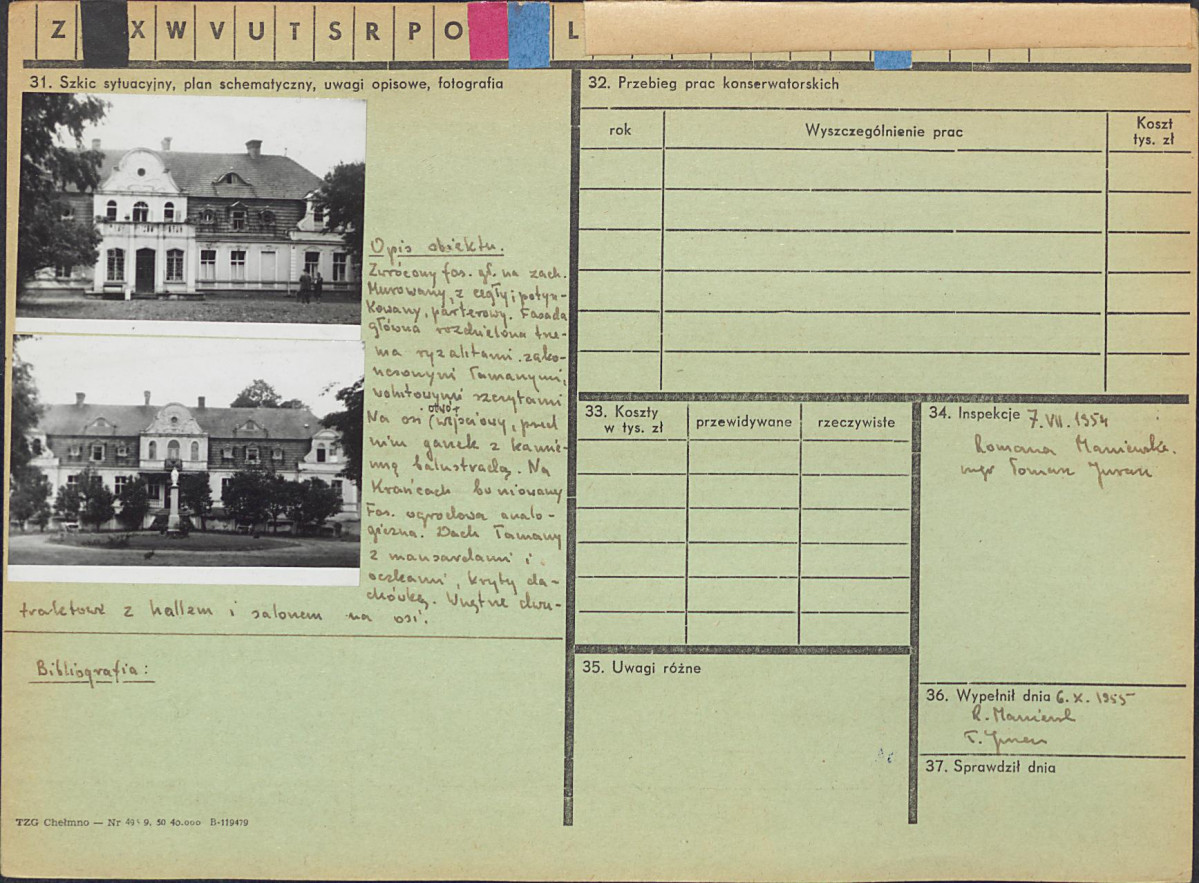 Z X W V U T S R P O L
31. Szkic sytuacyjny, plan schematyczny, uwagi opisowe, fotografia
Opis obiektu.
Zwrócony fas. gł. na zach.
Murowany, z cegły i potyn-
kowany, parterowy. Fasada
główna rozdzielona trze-
ma ryzalitami zako-
ńczonymi łamanymi,
wolutowymi szczytami
Na osi otwór wejściowy, przed
nim ganek z kamie-
nną balustradą. Na
krańcach boniowany
Fas. ogrodowa analo-
giczna. Dach łamany
z mansardami i
oczkami, kryty da-
chówką. Wnętrze dwu-
traktowe z hallem i salonem na osi.
Bibliografia:
TZG Chełmno — Nr 9. 50 40.000 B-119479
32. Przebieg prac konserwatorskich
rok
Wyszczególnienie prac
Koszt
tys. zł
33. Koszty
w tys. zł
przewidywane
rzeczywiste
34. Inspekcje 7. VII. 1954
Romana
mgr Tomasz
35. Uwagi różne
36. Wypełnił dnia 6. X. 1955
R.
T.
37. Sprawdził dnia